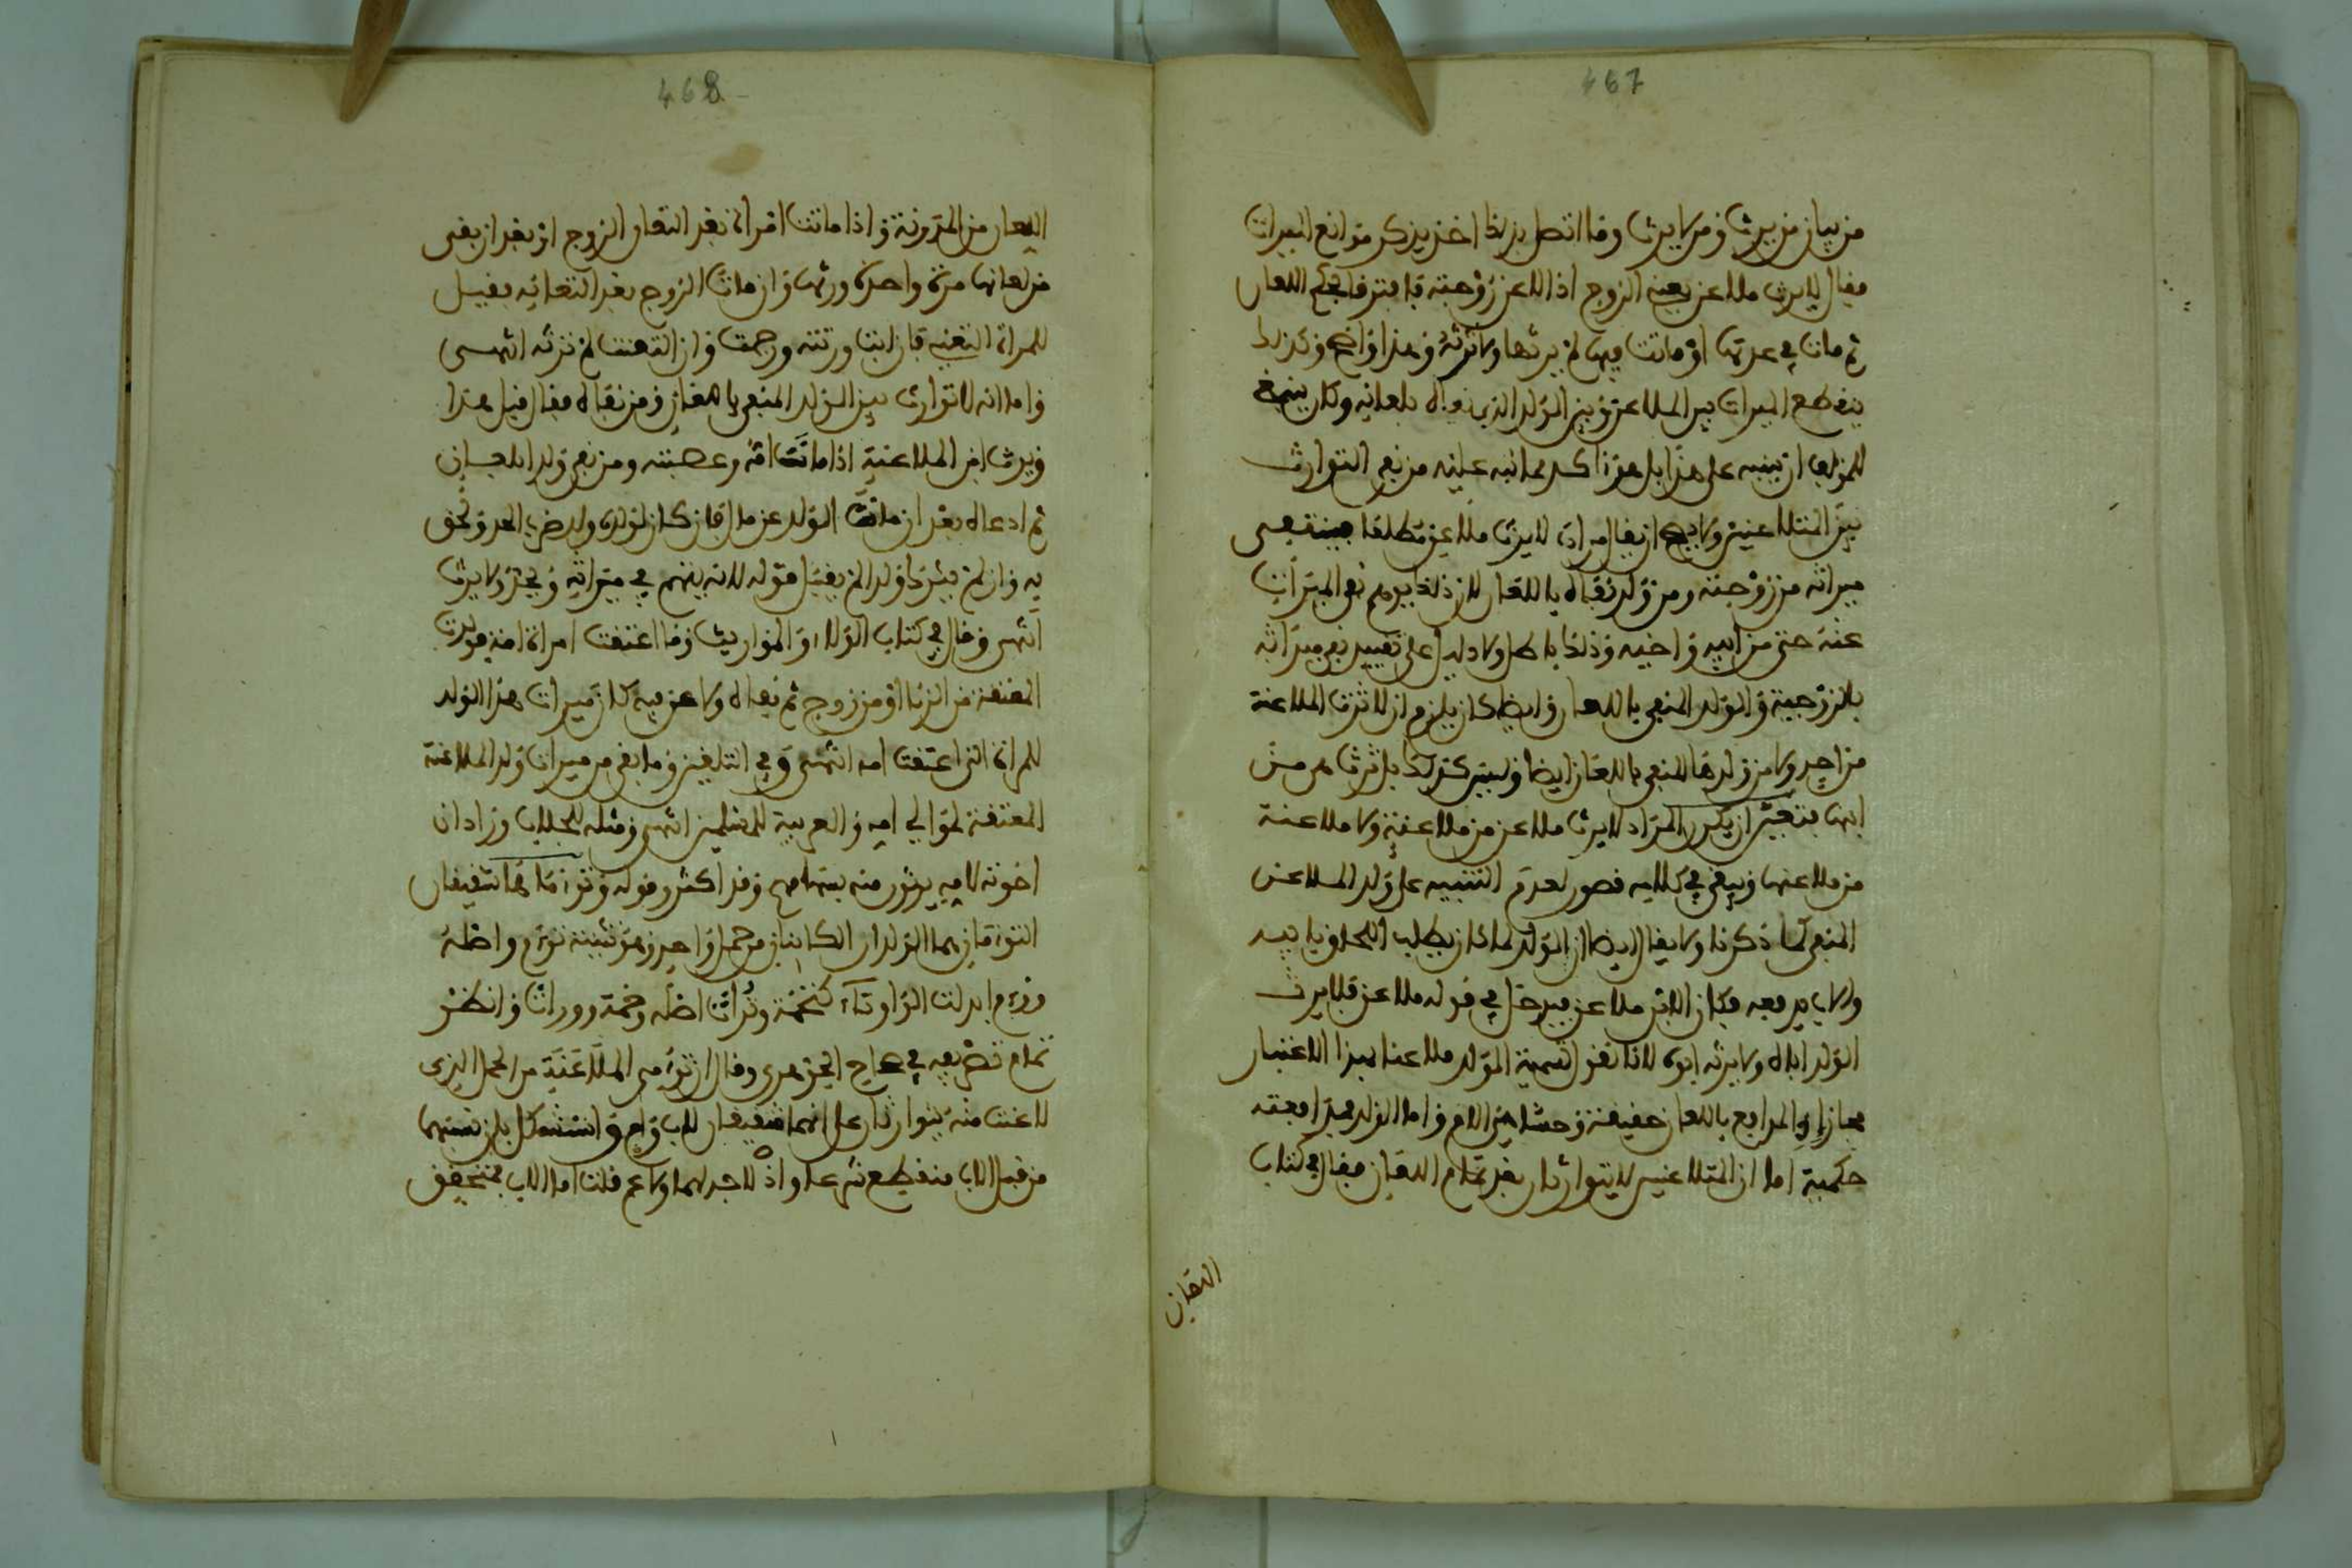 467
من بيان من يرث ومن لا يرث وما اتصل بذلك اخذ يذكر موانع الميراث
فقال لا يرث ملاعن يعني الزوج اذا لاعن زوجته فافترقا بحكم اللعان
ثم مات في عدتها او ماتت فيها لم يرثها ولا ترثه وهذا واضح وكذلك
ينقطع الميراث بين الملاعن وبين الولد الذي نفاه بلعانه وكان ينبغي
للمؤلف ان ينبه على هذا بل هو ءاكد مما نبه عليه من نفي التوارث
بين المتلاعنين ولا يصح ان يقال مراده لا يرث ملاعن مطلقا فينتفي
ميراثه من زوجته ومن ولد نفاه باللعان لان ذلك يوهم نفي الميراث
عنه حتى من ابيه واخيه وذلك باطل ولا دليل على تقييد نفي ميراثه
بالزوجية والولد المنفي باللعان وايضا كان يلزم ان لا ترث الملاعنة
من احد ولا من ولدها المنفي باللعان ايضا وليس كذلك بل ترث هي من
ابنها فتعين ان يكون المراد لا يرث ملاعن من ملاعنة ولا ملاعنة
من ملاعنها ويبقى في كلامه قصور لعدم التنبيه على ولد الملاعن
المنفي كما ذكرنا ولا يقال ايضا ان الولد لما كان يطلب اللحاق بابيه
والاب يدفعه فكان الابن ملاعن فيدخل في قوله ملاعن فلا يرث
الولد اباه ولا يرثه ابوه لانا نقول تسمية الولد ملاعنا بهذا الاعتبار
مجاز اذ المدافع باللعان حقيقة وحسا هي الام واما الولد فمدافعته
حكمية اما ان المتلاعنين لا يتوارثان بعد تمام اللعان فقال في كتاب
اللعان
468
اللعان من المدونة واذا ماتت امراة بعد التعان الزوج او بعد ان بقي
من لعانها مرة واحدة ورثها وان مات الزوج بعد التعانه فقيل
للمراة التعني فان ابت ورثته ورجمت وان التعنت لم ترثه انتهى
واما انه لا توارث بين الولد المنفي باللعان ومن نفاه فقال قبل هذا
ويرث ابن الملاعنة اذا مات امه وعصبته ومن نفى ولدا بلعان
ثم ادعاه بعد ان مات الولد عن مال فان كان لولده ولد ضرب الحد ولحق
به وان لم يترك ولدا لم يقبل قوله لانه يتهم في ميراثه ويحد ولا يرث
انتهى وقال في كتاب الولاء والمواريث وما اعتقت امراة امة فولدت
المعتقة من الزنا او من زوج ثم نفاه ولاعن فيه كان ميراث هذا الولد
للمراة التي اعتقت امه انتهى وفي التلقين وما بقي من ميراث ولد الملاعنة
المعتقة لموالي امه والعربية للمسلمين انتهى ومثله للجلاب وزاد ان
اخوته لامه يرثون منه بسهامهم وقد اكثر وقوله وتوءماها شقيقان
التوءمان هما الولدان الكائنان من حمل واحد وهو تثنية توءم واصله
ووءم ابدلت الواو تاء كتخمة وتراث اصله وخمة ووراث وانظر
تمام تصريفه في صحاح الجوهري وقال ان توءمي الملاعنة من الحمل الذي
لاعنت منه يتوارثان على انهما شقيقان لاب وام واستشكل بان نسبتهما
من قبل الاب منقطع شرعا واذ لا جد لهما ولا عم قلت اما الاب فمتحقق